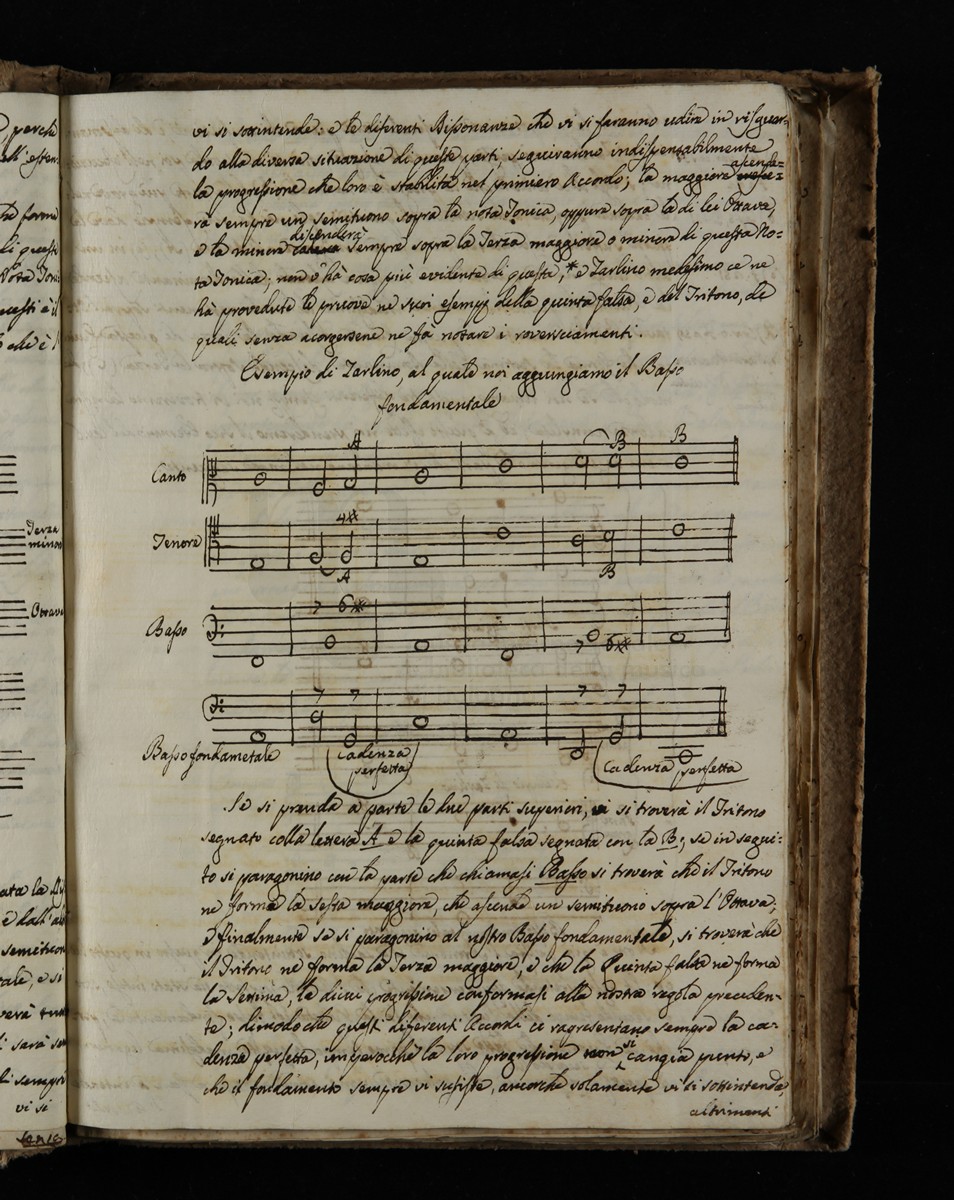 vi si sottintende: e le diferenti Dissonanze che vi si faranno udire in risguar-
do alla diversa situazione di queste parti seguiranno indispensabilmente
la progressione che loro è stabilita nel primiero Accordo; la maggiore ascende-
rà sempre un semituono sopra la nota Tonica, oppure sopra la di lei Ottava,
e la minore discenderà sempre sopra la Terza maggiore o minore di questa No-
ta Tonica; non v'hà cosa più evidente di questa,* e Zarlino medesimo ce ne
hà provedute le pruove ne suoi esempj della quinta falsa, e del Tritono, de
quali senza acorgersene ne fà notare i roversciamenti.
Esempio di Zarlino, al quale noi aggiungiamo il Basso
fondamentale
A B B
Canto
4*
Tenore
A B
7 6*
Basso
7 6*
7 7 7 7
Basso fondametale
Cadenza
perfetta
Cadenza perfetta
Se si prenda a parte le due parti superiori, vi si troverà il Tritono
segnato colla lettera A e la quinta falsa segnata con la B; se in segui-
to si paragonino con la parte che chiamasi Basso si troverà che il Tritono
ne forma la sesta maggiore, che ascende un semituono sopra l'Ottava;
e finalmente se si paragonino al nostro Basso fondamentale, si troverà che
il Tritono ne forma la Terza maggiore, e che la Quinta falsa ne forma
la Settima, la dicui progressione conformasi alla nostra regola preceden-
te; dimodoche questi diferenti Accordi ci rapresentano sempre la ca-
denza perfetta, imperocchè la loro progressione non si cangia punto, e
che il fondamento sempre vi susiste, ancorche solamente vi si sottintenda,
altrimenti
perche
Terza
minor
Ottava
vi si